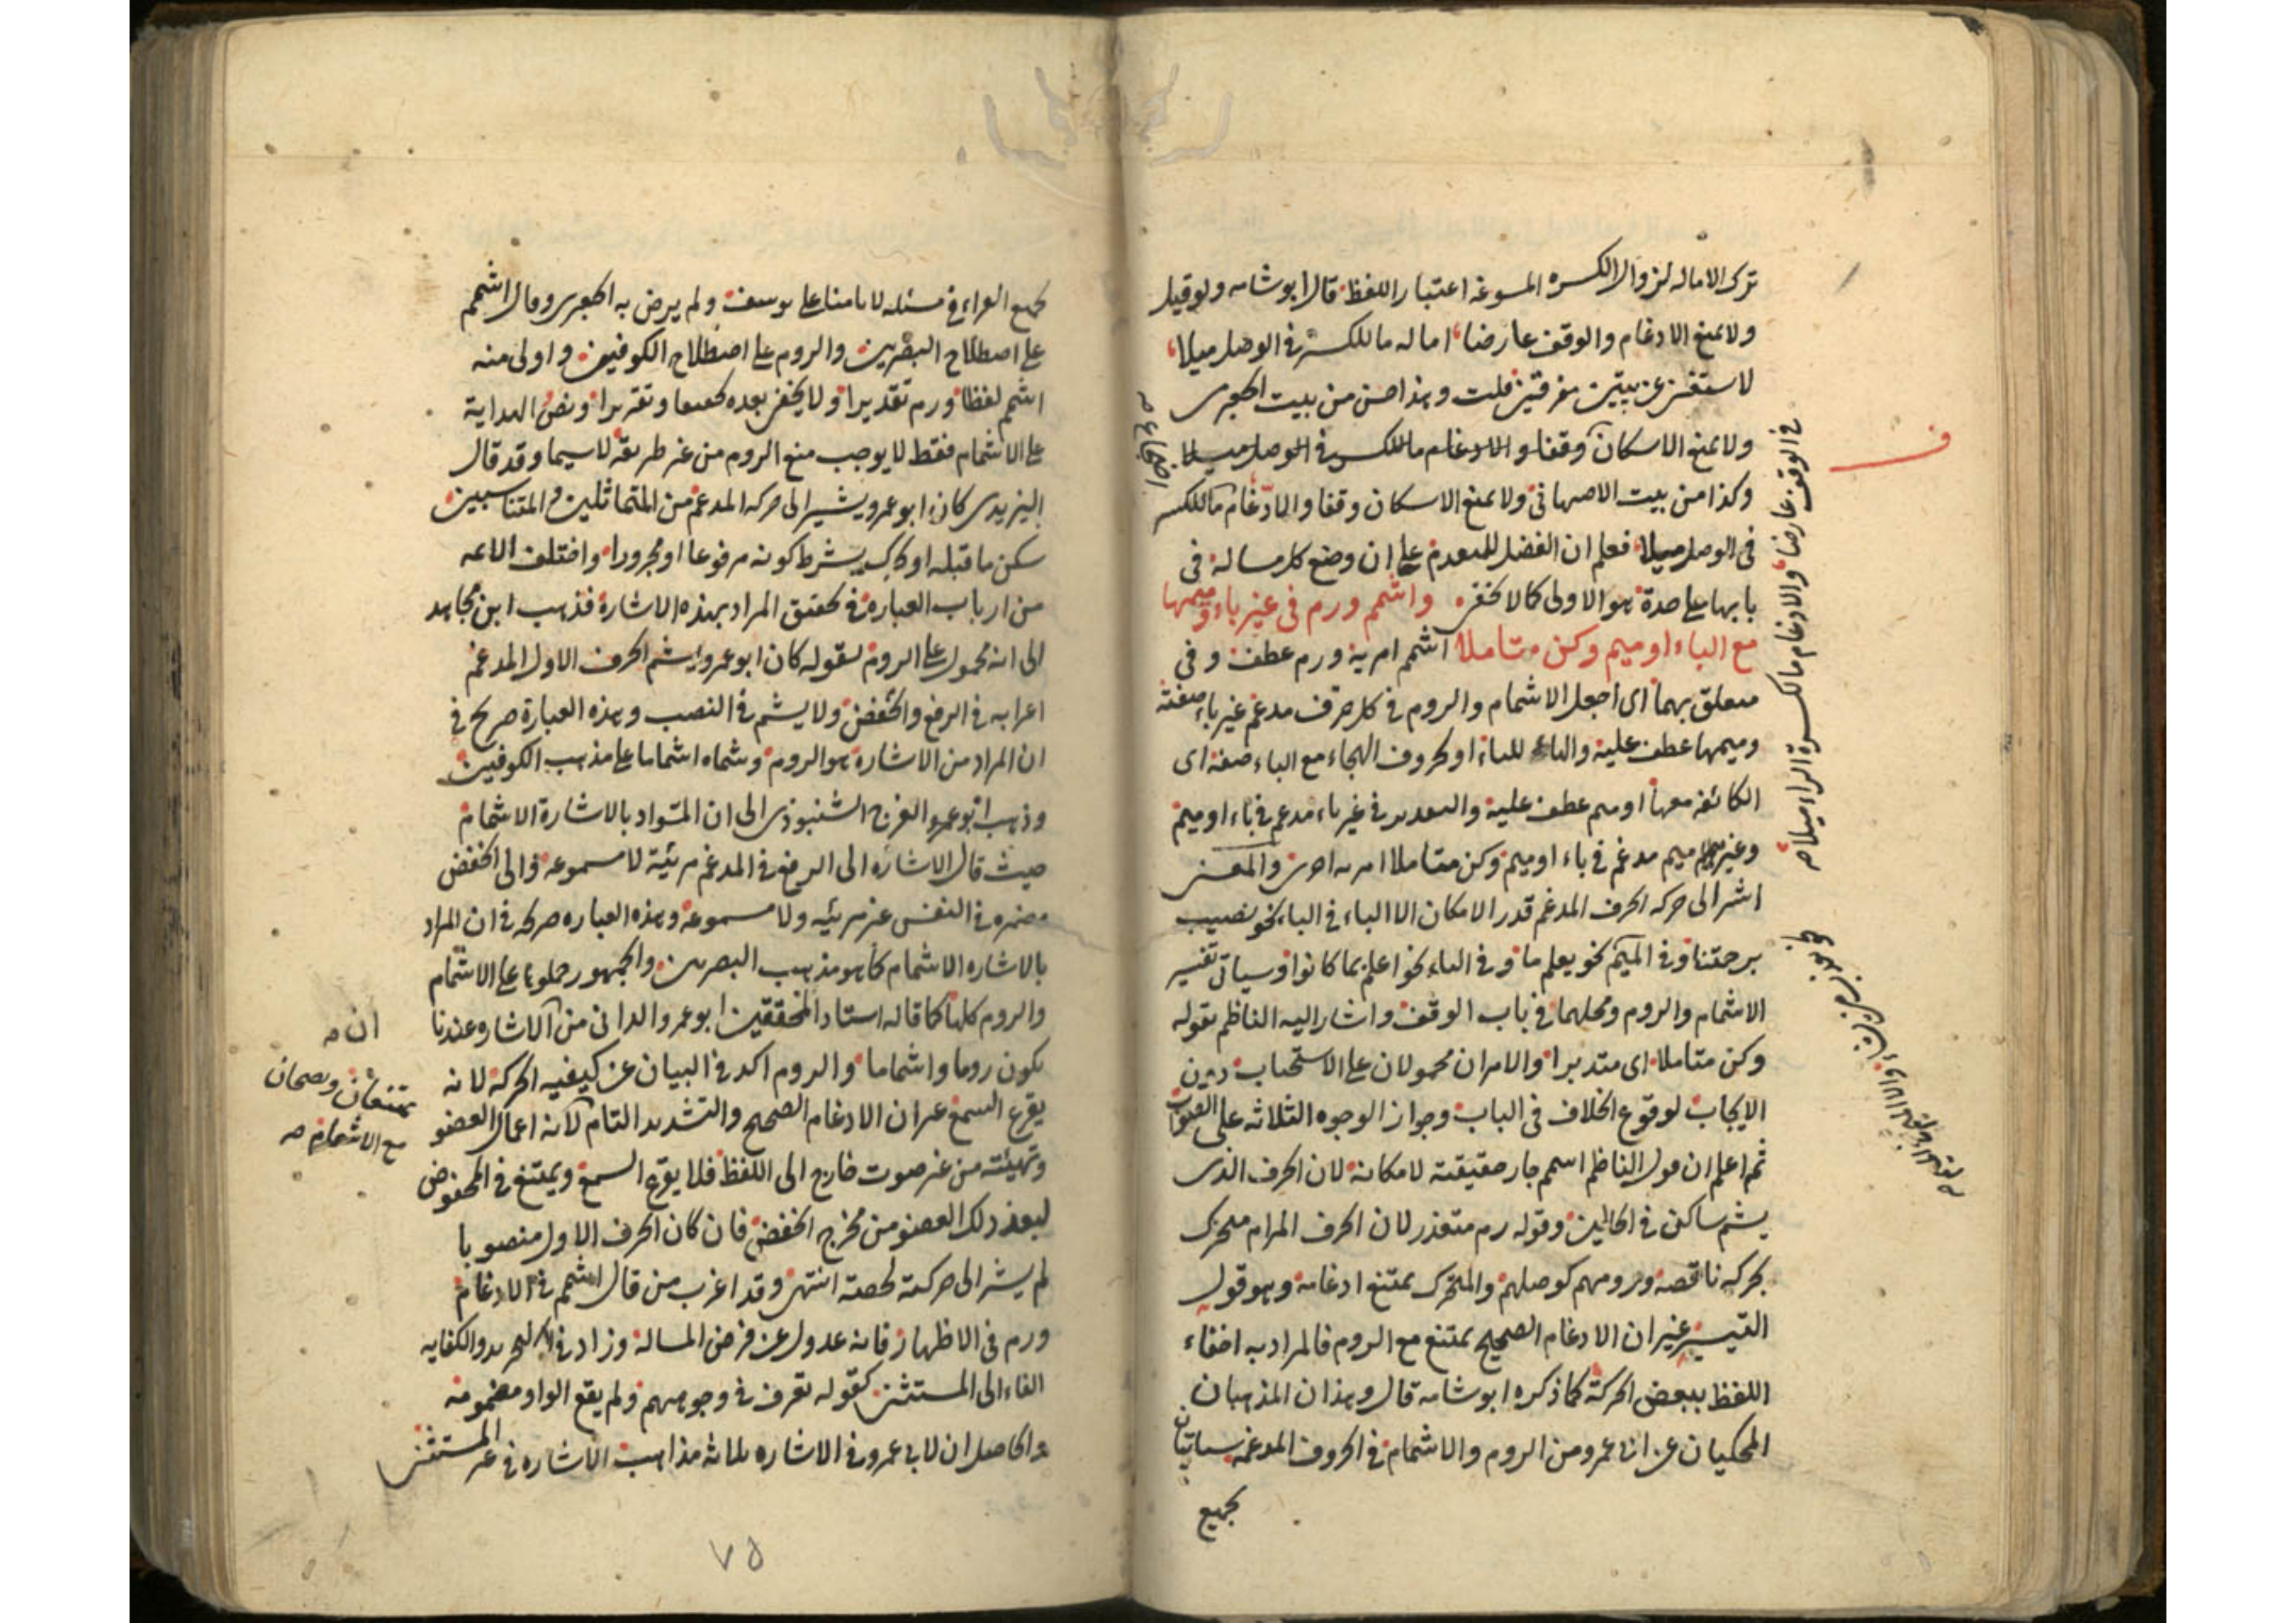 ترك الاماله لزوال الكسره المسوغه اعتبار اللفظ قال ابو شامه ولو قيل
ولا يمنع الادغام والوقف عارضا اماله ما للكسر في الوصل ميلا
لاستغنى عن بيتين مفرقتين قلت وهذا احسن من بيت الجعبرى
ولا يمنع الاسكان وقفا والادغام ما للكسر في الوصل ميلا
وكذا من بيت الاصبهانى ولا يمنع الاسكان وقفا والادغام ما للكسر
فى الوصل ميلا فعلم ان الفضل للمتقدم على ان وضع كل مسالة فى
بابها على حدة هو الاولى كما لا يخفى واشمم ورم فى غير باء وميمها
مع الباء او ميم وكن متاملا اشمم امرية ورم عطف وفى
متعلق بهما اى اجعل الاشمام والروم فى كل حرف مدغم غير باء صفته
وميمها عطف عليه والهاء للباء او لحروف الهجاء مع الباء صفة اى
الكائنة معها او ميم عطف عليه والتقدير فى غير باء مدغم فى باء او ميم
وغير ميم مدغم فى باء او ميم وكن متاملا امريه اخرى والمعنى
اشر الى حركه الحرف المدغم قدر الامكان الا الباء فى الباء نحو نصيب
برحمتنا وفى الميم نحو يعلم ما وفى الباء نحو اعلم بما كانوا وسياتى تفسير
الاشمام والروم ومحلهما فى باب الوقف واشار اليه الناظم بقوله
وكن متاملا اى متدبرا والامران محمولان على الاستحباب دون
الايجاب لوقوع الخلاف فى الباب وجواز الوجوه الثلاثه على الصواب
ثم اعلم ان قول الناظم اشمم جار حقيقته لامكانه لان الحرف الذى
يشم ساكن فى الحالين وقوله رم متعذر لان الحرف المرام متحرك
بحركه ناقصة ورومهم كوصلهم والمتحرك يمتنع ادغامه وهو قول
التيسير غير ان الادغام الصحيح يمتنع مع الروم فالمراد به اخفاء
اللفظ ببعض الحركة كما ذكره ابو شامه قال وهذان المذهبان
المحكيان عن ابى عمرو من الروم والاشمام فى الحروف المدغمه سياتيان
لجميع
فى الوقف عارضا والادغام ما لكسرة الراء ميلا
لجميع القراء فى مسئله لا تامنا على يوسف ولم يرض به الجعبرى وقال اشمم
على اصطلاح البصريين والروم على اصطلاح الكوفيين واولى منه
اشمم لفظا ورم تقديرا ولا يخفى بعده تحقيقا وتقريرا ونص الهداية
على الاشمام فقط لا يوجب منع الروم من غير طريقه لاسيما وقد قال
اليزيدى كان ابو عمرو يشير الى حركه المدغم من المتماثلين والمتناسبين
سكن ما قبله او تحرك بشرط كونه مرفوعا او مجرورا واختلف الائمه
من ارباب العبارة فى تحقيق المراد بهذه الاشارة فذهب ابن مجاهد
الى انه محمول على الروم لقوله كان ابو عمرو يشم الحرف الاول المدغم
اعرابه فى الرفع والخفض ولا يشم فى النصب وهذه العبارة صريح فى
ان المراد من الاشارة هو الروم وسماه اشماما على مذهب الكوفيين
وذهب ابو عمرو الفرج الشنبوذى الى ان المراد بالاشارة الاشمام
حيث قال الاشاره الى الرفع فى المدغم مرئية لا مسموعة والى الخفض
مضمره فى النفس غير مرئيه ولا مسموعة وهذه العباره صريحه فى ان المراد
بالاشاره الاشمام كما هو مذهب البصريين والجمهور حملوها على الاشمام
والروم كليهما كما قاله استاد المحققين ابو عمرو الدانى من الاشاره عندنا
يكون روما واشماما والروم اكد فى البيان عن كيفيه الحركة لانه
يقرع السمع غير ان الادغام الصحيح والتشديد التام لانه اعمال العضو
وتهيئته من غير صوت خارج الى اللفظ فلا يقرع السمع ويمتنع فى المخفوض
لبعد ذلك العضو من مخرج الخفض فان كان الحرف الاول منصوبا
لم يشر الى حركته لخفته انتهى وقد اغرب من قال اشمم فى الادغام
ورم فى الاظهار فانه عدول عن فرض المسالة وزاد فى التجريد والكفايه
الفاء الى المستثنى كقوله تعرف فى وجوههم ولم يقع الواو مضمومه
والحاصل ان لابى عمرو فى الاشاره ثلاثة مذاهب الاشاره فى غير المستثنى
يمتنعان ويصحان
مع الاشمام صح
٧٥